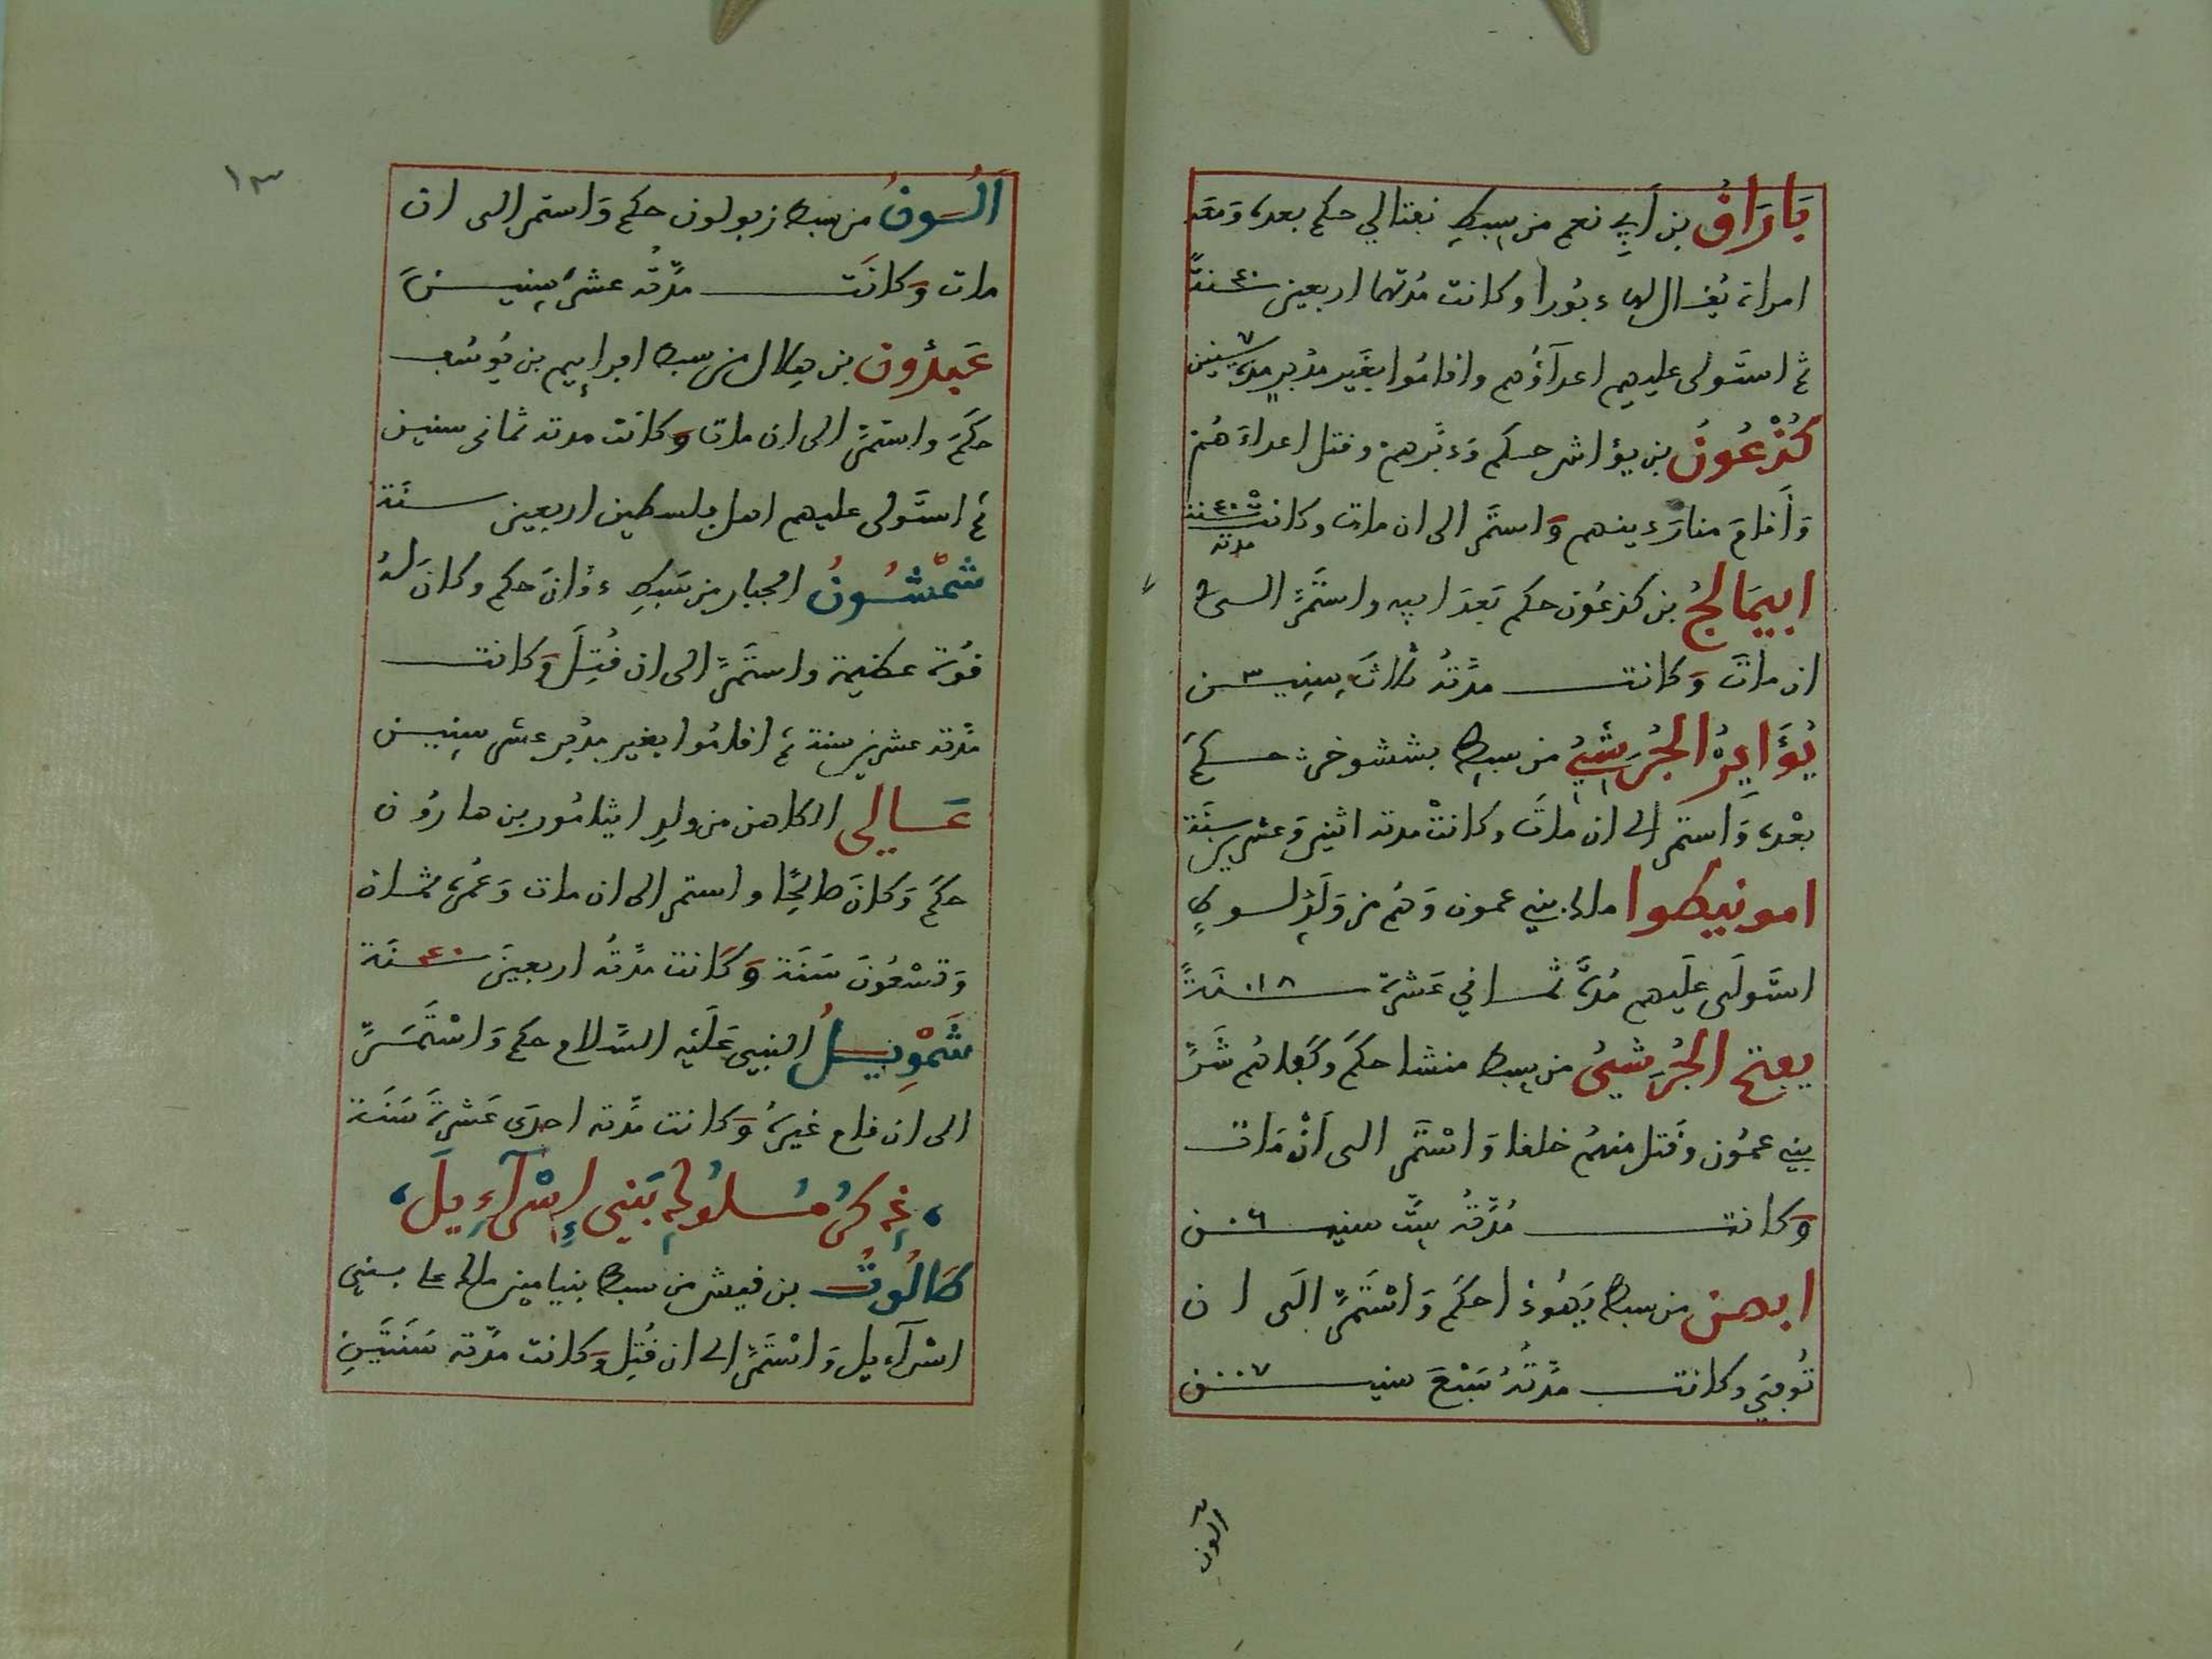 بَارَاقُ بن أَبِي نعم من سبطِ نفتالي حكم بعده وَمعَه
امراة يُقال لها دبُورا وكانت مُدتهما اربعين ٤٠ سنةً
ثم استَولى عليهم اعدآؤُهم واقامُوا بغَير مدُبرٍ مدة ٧ سنين
كُذْعُونُ بن يؤاش حكم وَدبَّرهم وقتل اعداءَهُم
وَأَقامَ منارَ دينهم وَاستمَّر الى ان مات وكانت مدته ٤٠ سنة
ابيمَالخُ بن كذعُون حكم بَعدَ ابيه واستَمَرّ الى
ان ماتَ وَكانت مدَّتهُ ثلاثَ سِنِين ٣
يُؤَايِرُ الجُرَشِيُ من سبط بششوخر حكمَ
بعْده وَاستمَر الى ان ماتَ وكانتْ مدته اثنين وَعشرين سنَة
امونيطوا ملك بني عمون وَهُم من وَلَدِ لوطٍ
استَولَى علَيهم مُدةَ ثماني عَشرة ١٨ سَنَةً
يفتح الجُرَشيُ من سبط منشا حكمَ وَكفاهُم شَرَّ
بني عمُون وَقتل منهُم خلقا وَاسْتَمَر الى اَنْ مَات
وَكانت مُدَّتهُ سِتَّ سنين ٦
ابصن من سبط يَهُوذا حكَم وَاسْتَمَرّ الَى ان
تُوفِيَ وكانت مدَّتُهُ سَبْعَ سنين ٧
الون
١٣
اَلُونُ من سبط زبولون حكم وَاستمر الى ان
مات وَكانَت مدَّتُه عشر سِنينَ
عَبدُون بن هلال من سبط افراييم بن يُوسُف
حكَمَ واستمَرَّ الى ان مات وَكانت مدته ثمانى سنين
ثم استَولى عليهم اهل فلسطين اربعين سنَة
شمْشُونُ الجبار من سَبطِ دَانَ حكم وكانَ لهُ
قوُة عظيمة واستَمَرَّ الى ان قُتِلَ وَكانت
مدَّته عشرين سنة ثم اقامُوا بغير مدُبر عشر سِنين
عَالِي الكاهن من ولدِ ايثامُور بن هارُون
حكَمَ وَكانَ صالِحًا واستمر الى ان مات وَعُمره ثمان
وَتسْعُونَ سَنَة وَكَانت مدَّتهُ اربعينَ ٤٠ سنَة
شَمْوِيلُ النبي عَلَيْه السَّلام حكم وَاسْتَمَرَّ
الى ان قام غيرَهُ وَكانت مدَّته احدَى عَشرةَ سَنَة
، ذِكرُ مُلُوكِ بَنِي اِسْرَآءِيلَ ،
طَالُوتُ بن قيش من سبط بنيامين ملك على بنى
اسْرآءيل وَاسْتَمَرَّ الى ان قُتِل وَكانت مدَّته سَنَتَينِ